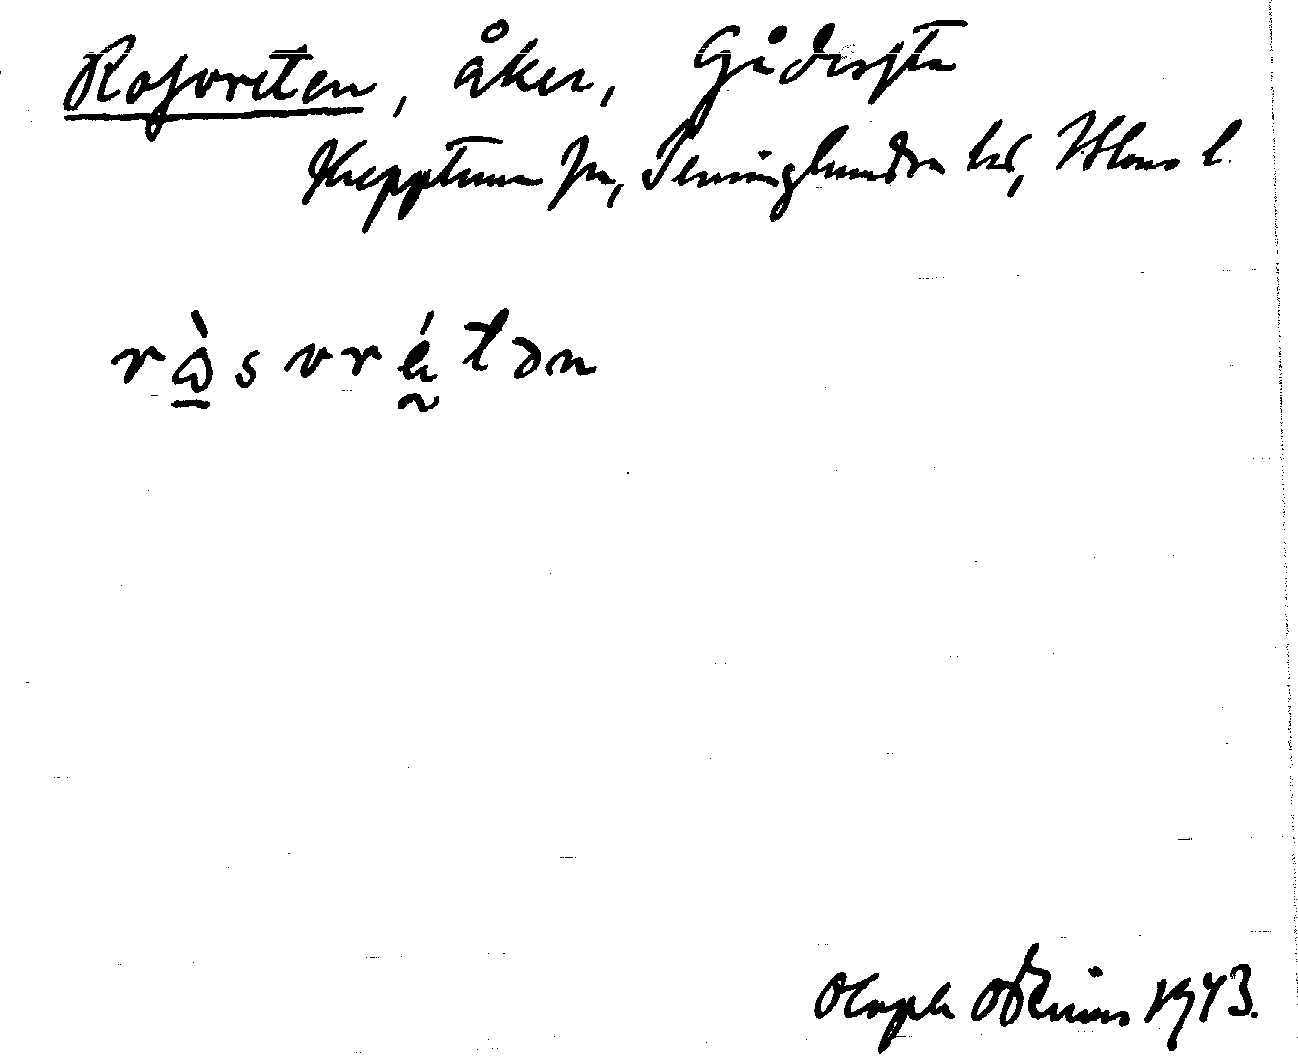 Rosvreten, åker, Gådersta
Knepptuna sn, Seminghundra hd, Uhlms l.
ràsvrétən
Olaph Odenius 1943.